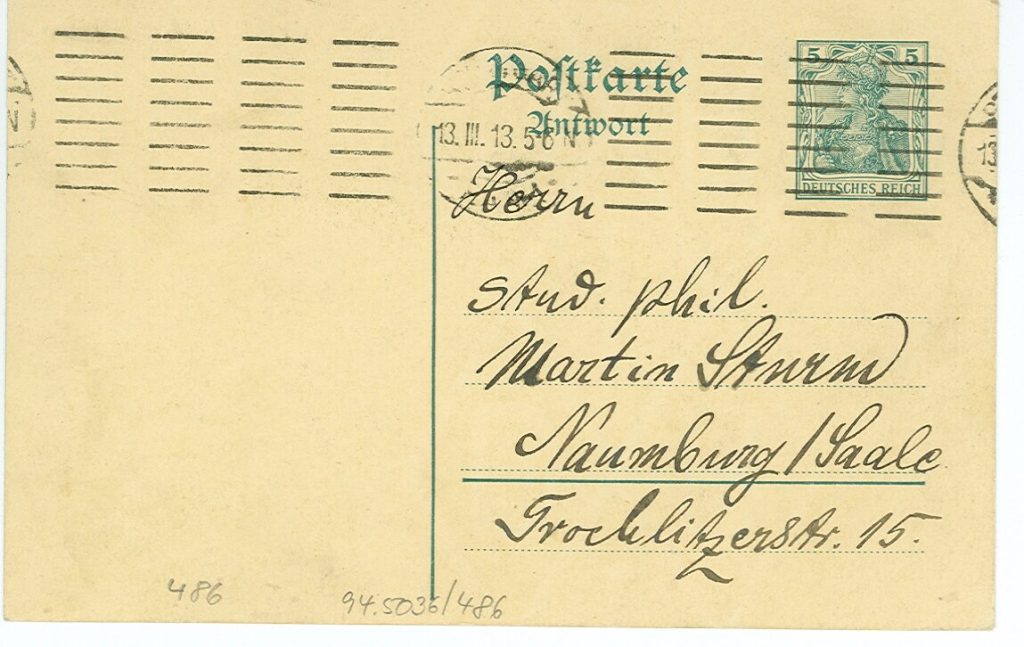 Postkarte
5 5
Antwort
13. III. 13. 5-6 N
DEUTSCHES REICH
Herrn
stud. phil.
Martin Sturm
Naumburg / Saale
Trochlitzerstr. 15.
486
94.5036/486